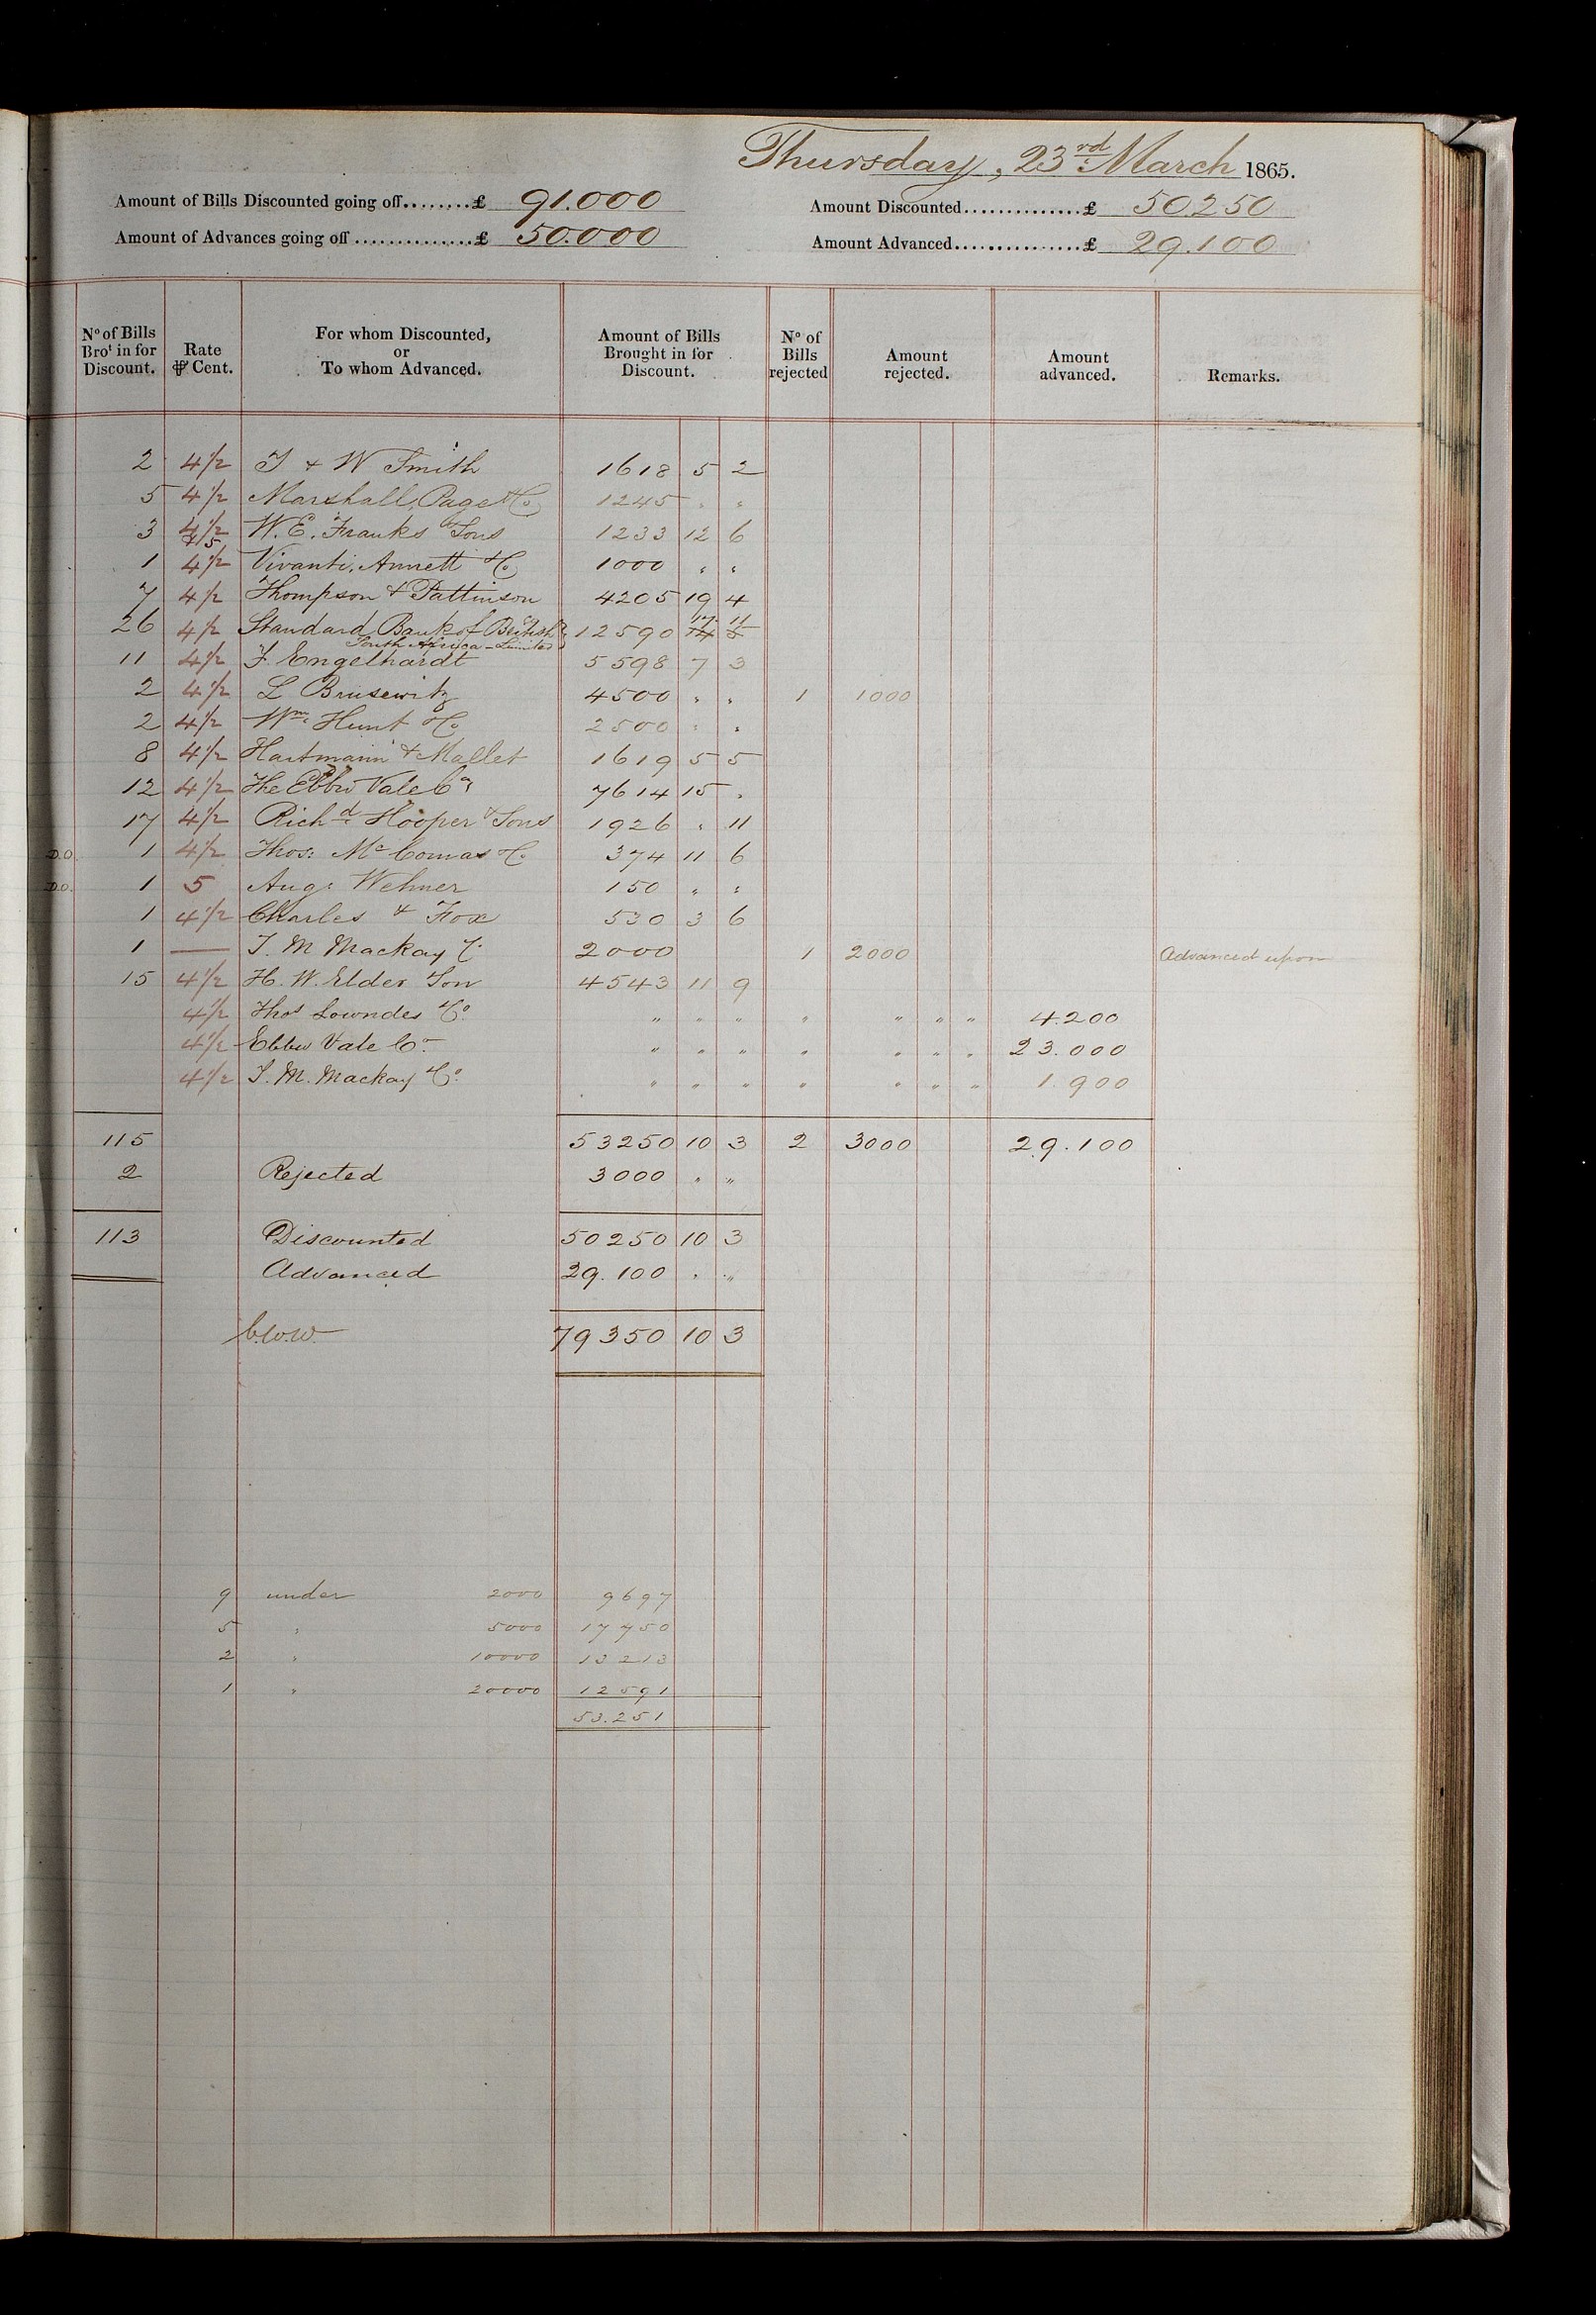 Thursday, 23rd March 1865.
Amount of Bills Discounted going off........£ 91.000
Amount Discounted..............£ 50.250
Amount of Advances going off...............£ 50.000
Amount Advanced...............£ 29.100
No of Bills Brot in for Discount. Rate ⅌ Cent. For whom Discounted, or To whom Advanced. Amount of Bills Brought in for Discount. No of Bills rejected Amount rejected. Amount advanced. Remarks.
2 4½ T & W Smith 1618 5 2
5 4½ Marshall, Page & Co 1245 " "
3 4½ & 5 W. E. Franks & Sons 1233 12 6
1 4½ Vivanti, Annett & Co 1000 " "
7 4½ Thompson & Pattinson 4205 19 4
26 4½ Standard Bank of British 12590 17 11
South Africa - Limited
11 4½ F. Engelhardt 5598 7 3
2 4½ L Brusewitz 4500 " " 1 1000
2 4½ Wm Hunt & Co 2500 " "
8 4½ Hartmann & Mallet 1619 5 5
12 4½ The Ebbw Vale Co 7614 15 "
17 4½ Richd Hooper & Sons 1926 " 11
D.O. 1 4½ Thos: Mc Comas & Co 374 11 6
D.O. 1 5 Aug: Wehner 150 " "
1 4½ Charles & Fox 530 3 6
1 — T. M Mackay & Co 2000 1 2000 Advanced upon
15 4½ H. W. Elder & Son 4543 11 9
4½ Thos Lowndes & Co. " " " " " " " 4.200
4½ Ebbw Vale Co. " " " " " " " 23.000
4½ T. M. Mackay & Co. " " " " " " " 1.900
115 53250 10 3 2 3000 29.100
2 Rejected 3000 " "
113 Discounted 50250 10 3
Advanced 29.100 " "
79350 10 3
9 under 2000 9697
5 " 5000 17750
2 " 10000 13213
1 " 20000 12591
53.251